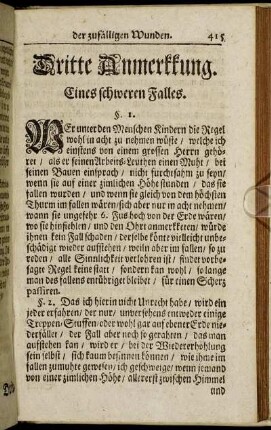 der zufälligen Wunden. 415
Dritte Anmerkkung.
Eines schweren Falles.
§. 1.
WEr unter den Menschen Kindern die Regel
wohl in acht zu nehmen wüste / welche ich
einstens von einem grossen Herrn gehö-
ret / als er seinen Arbeits-Leuthen einen Muht / bey
seinen Bauen einsprach / nicht furchtsahm zu seyn/
wenn sie auf einer zimlichen Höhe stunden / daß sie
fallen wurden / und wenn sie gleich von dem höchsten
Thurm im fallen wären sich aber nur in acht nehmen/
wann sie ungefehr 6. Fus hoch von der Erde wären/
wo sie hinfiehlen / und den Ohrt anmerkketen / würde
ihnen kein Fall schaden / derselbe könte vielleicht unbe-
schädigt wieder aufstehen / weiln aber im fallen / so zu
reden / alle Sinnlichkeit verlohren ist / findet vorbe-
sagte Regel keine statt / sondern kan wohl / so lange
man des fallens entübriget bleibet / für einen Scherz
passiren.
§. 2. Das ich hierin nicht Unrecht habe / wird ein
jeder erfahren / der nur / unversehens entweder einige
Treppen-Stuffen oder wohl gar auf ebener Erde nie-
derfället / der Fall aber noch so gerahten / das man
aufstehen kan / wird er / bey der Wiedererhöhlung
sein selbst / sich kaum besinnen können / wie ihme im
fallen zu muhte gewesen / ich geschweige / wenn jemand
von einer zimlichen Höhe / allererst zwischen Himmel
und